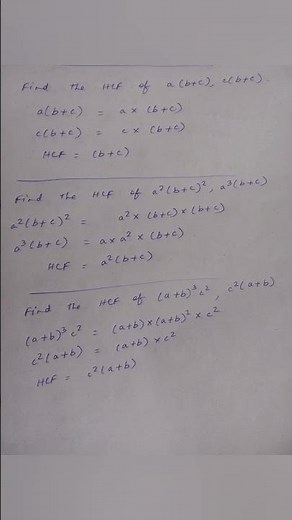 Find the HCF of a(b+c), c(b+c).
a(b+c) = a × (b+c)
c(b+c) = c × (b+c)
HCF = (b+c)
Find the HCF of a²(b+c)², a³(b+c)
a²(b+c)² = a² × (b+c) × (b+c)
a³(b+c) = a × a² × (b+c)
HCF = a²(b+c)
Find the HCF of (a+b)³c², c²(a+b)
(a+b)³c² = (a+b) × (a+b)² × c²
c²(a+b) = (a+b) × c²
HCF = c²(a+b)